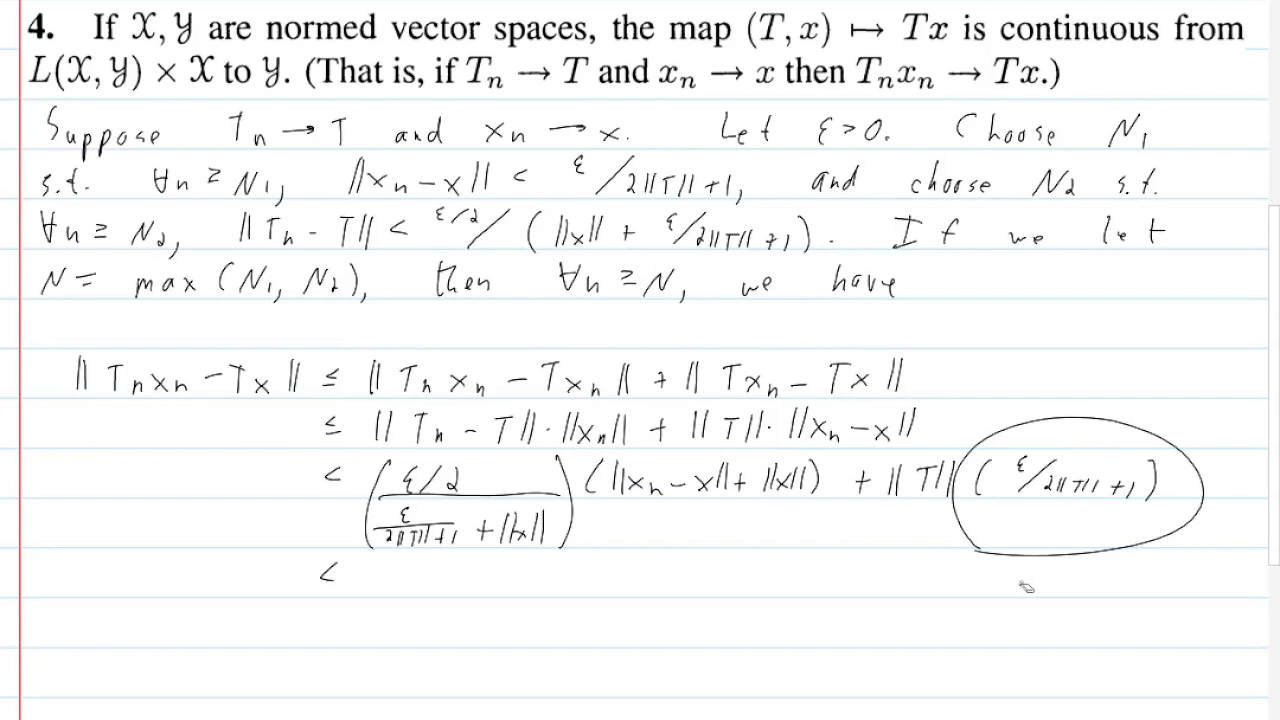 4. If 𝒳, 𝒴 are normed vector spaces, the map (T, x) ↦ Tx is continuous from
L(𝒳, 𝒴) × 𝒳 to 𝒴. (That is, if Tₙ → T and xₙ → x then Tₙxₙ → Tx.)
Suppose Tₙ → T and xₙ → x. Let ε > 0. Choose N₁
s.t. ∀n ≥ N₁, ||xₙ - x|| < ε/2||T||+1, and choose N₂ s.t.
∀n ≥ N₂, ||Tₙ - T|| < ε/2/(||x|| + ε/2||T||+1). If we let
N = max(N₁, N₂), then ∀n ≥ N, we have
||Tₙxₙ - Tx|| ≤ ||Tₙxₙ - Txₙ|| + ||Txₙ - Tx||
≤ ||Tₙ - T||·||xₙ|| + ||T||·||xₙ - x||
< (ε/2 / (ε/(2||T||+1) + ||x||)) (||xₙ - x|| + ||x||) + ||T|| (ε/2||T||+1)
<